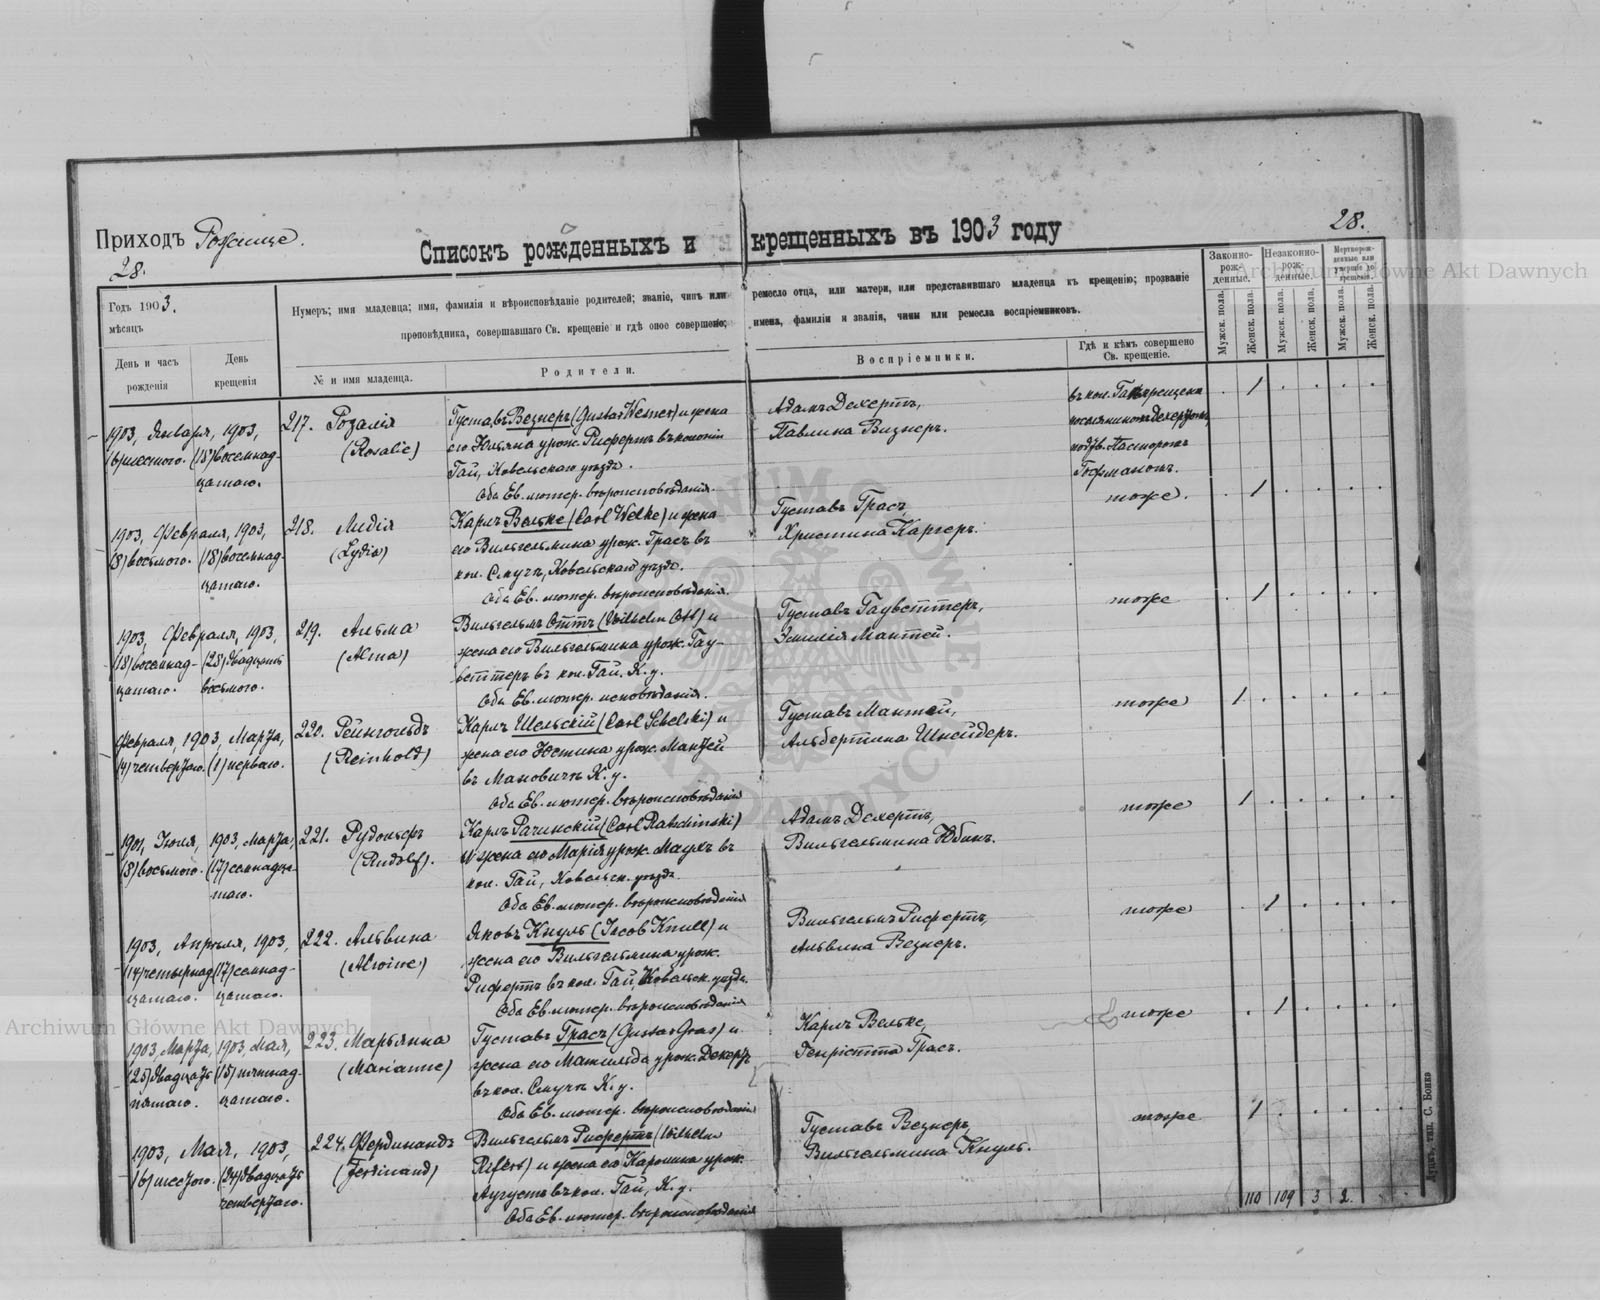 Приходъ Рожище.
28.
Списокъ рожденныхъ и крещенныхъ въ 1903 году
28.
Годъ 1903.
мѣсяцъ
День и часъ рожденія
День крещенія
Нумеръ; имя младенца; имя, фамилія и вѣроисповѣданіе родителей; званіе, чинъ или ремесло отца, или матери, или представившаго младенца къ крещенію; прозваніе
проповѣдника, совершавшаго Св. крещеніе и гдѣ оное совершено; имена, фамиліи и званія, чины или ремесла воспріемниковъ.
№ и имя младенца.
Родители.
Воспріемники.
Гдѣ и кѣмъ совершено Св. крещеніе.
Законно-рож-денные.
Незаконно-рож-денные.
Мертворож-денные или умершіе до крещенія.
Мужск. пола.
Женск. пола.
Мужск. пола.
Женск. пола.
Мужск. пола.
Женск. пола.
1903, Января, 1903,
(6) шестого. (18) восемнад-
цатаго.
217. Розалія
(Rosalie)
Густавъ Везнеръ (Gustav Wesner) и жена
его Юльяна урож. Рифертъ въ колоніи
Гай, Ковельскаго уѣзда.
Оба Ев. лютер. вѣроисповѣданія.
Адамъ Дехертъ,
Павлина Визнеръ.
въ кол. Гай крещена
поселяниномъ Дехертомъ,
подтв. Пасторомъ
Гофманомъ.
1
1903, Февраля, 1903,
(8) восьмого. (18) восемнад-
цатаго.
218. Лидія
(Lydia)
Карлъ Вельке (Carl Welke) и жена
его Вильгельмина урож. Грасъ въ
кол. Смучъ, Ковельскаго уѣзда.
Оба Ев. лютер. вѣроисповѣданія.
Густавъ Грасъ,
Христина Каргеръ.
тоже.
1
1903, Февраля, 1903,
(18) восемнад-
цатаго.
(28) двадцать
восьмого.
219. Альма
(Alma)
Вильгельмъ Оттъ (Wilhelm Ott) и
жена его Вильгельмина урож. Гау-
веттеръ въ кол. Гай, К. у.
Оба Ев. лютер. исповѣданія.
Густавъ Гауветтеръ,
Эмилія Мантей.
тоже
1
Февраля, 1903, Марта,
(4) четвертаго. (1) перваго.
220. Рейнгольдъ
(Reinhold)
Карлъ Шельскій (Carl Schelski) и
жена его Юстина урож. Мантей
въ Мановичъ К. у.
Оба Ев. лютер. вѣроисповѣданія
Густавъ Мантей,
Альбертина Шнейдеръ.
тоже
1
1901, Іюля, 1903, Марта,
(8) восьмого. (17) семнадца-
таго.
221. Рудольфъ
(Rudolf).
Карлъ Рачинскій (Carl Ratschinski)
и жена его Марія урож. Маухъ въ
кол. Гай, Ковельск. уѣзда.
Оба Ев. лютер. вѣроисповѣданія
Адамъ Дехертъ,
Вильгельмина Юбинъ.
тоже
1
1903, Апрѣля, 1903,
(14) четырнад-
цатаго.
(17) семнад-
цатаго.
222. Альвина
(Alwine)
Яковъ Кнуль (Jacob Knull) и
жена его Вильгельмина урож.
Рифертъ въ кол. Гай, Ковельск. уѣзда.
Оба Ев. лютер. вѣроисповѣданія
Вильгельмъ Рифертъ,
Альвина Везнеръ.
тоже
1
1903, Марта, 1903, Мая,
(25) двадцать
пятаго.
(15) пятнад-
цатаго.
223. Марьянна
(Marianne)
Густавъ Грасъ (Gustav Gras) и
жена его Матильда урож. Дехертъ
въ кол. Смучъ К. у.
Оба Ев. лютер. вѣроисповѣданія
Карлъ Вельке,
Генріетта Грасъ.
тоже
1
1903, Мая, 1903,
(6) шестого. (24) двадцать
четвертаго.
224. Фердинандъ
(Ferdinand)
Вильгельмъ Рифертъ (Wilhelm
Rifert) и жена его Каролина урож.
Аугустъ въ кол. Гай, К. у.
Оба Ев. лютер. вѣроисповѣданія
Густавъ Везнеръ,
Вильгельмина Кнуль.
тоже
1
110 109 3 2.
Archiwum Główne Akt Dawnych
Archiwum Główne Akt Dawnych